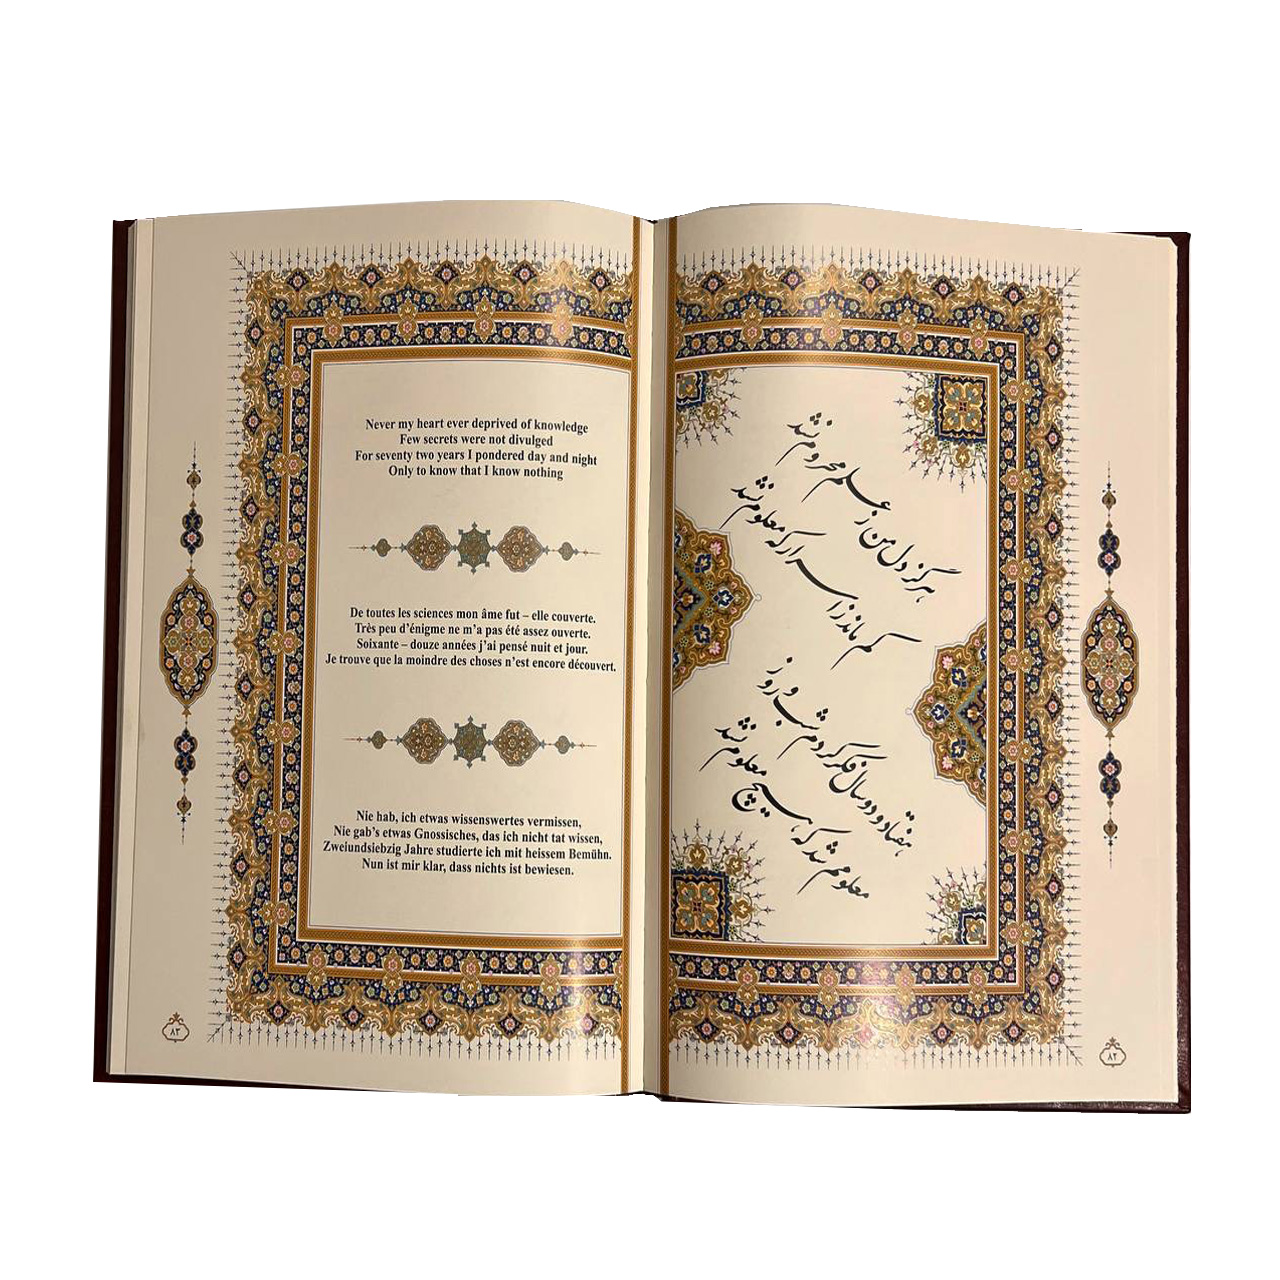 Never my heart ever deprived of knowledge
Few secrets were not divulged
For seventy two years I pondered day and night
Only to know that I know nothing
De toutes les sciences mon âme fut – elle couverte.
Très peu d’énigme ne m’a pas été assez ouverte.
Soixante – douze années j’ai pensé nuit et jour.
Je trouve que la moindre des choses n’est encore découvert.
Nie hab, ich etwas wissenswertes vermissen,
Nie gab’s etwas Gnossisches, das ich nicht tat wissen,
Zweiundsiebzig Jahre studierte ich mit heissem Bemühn.
Nun ist mir klar, dass nichts ist bewiesen.
۸۳
هرگز دل من ز علم محروم نشد
کم ماند ز اسرار که معلوم نشد
هفتاد و دو سال فکر کردم شب و روز
معلومم شد که هیچ معلوم نشد
۸۲